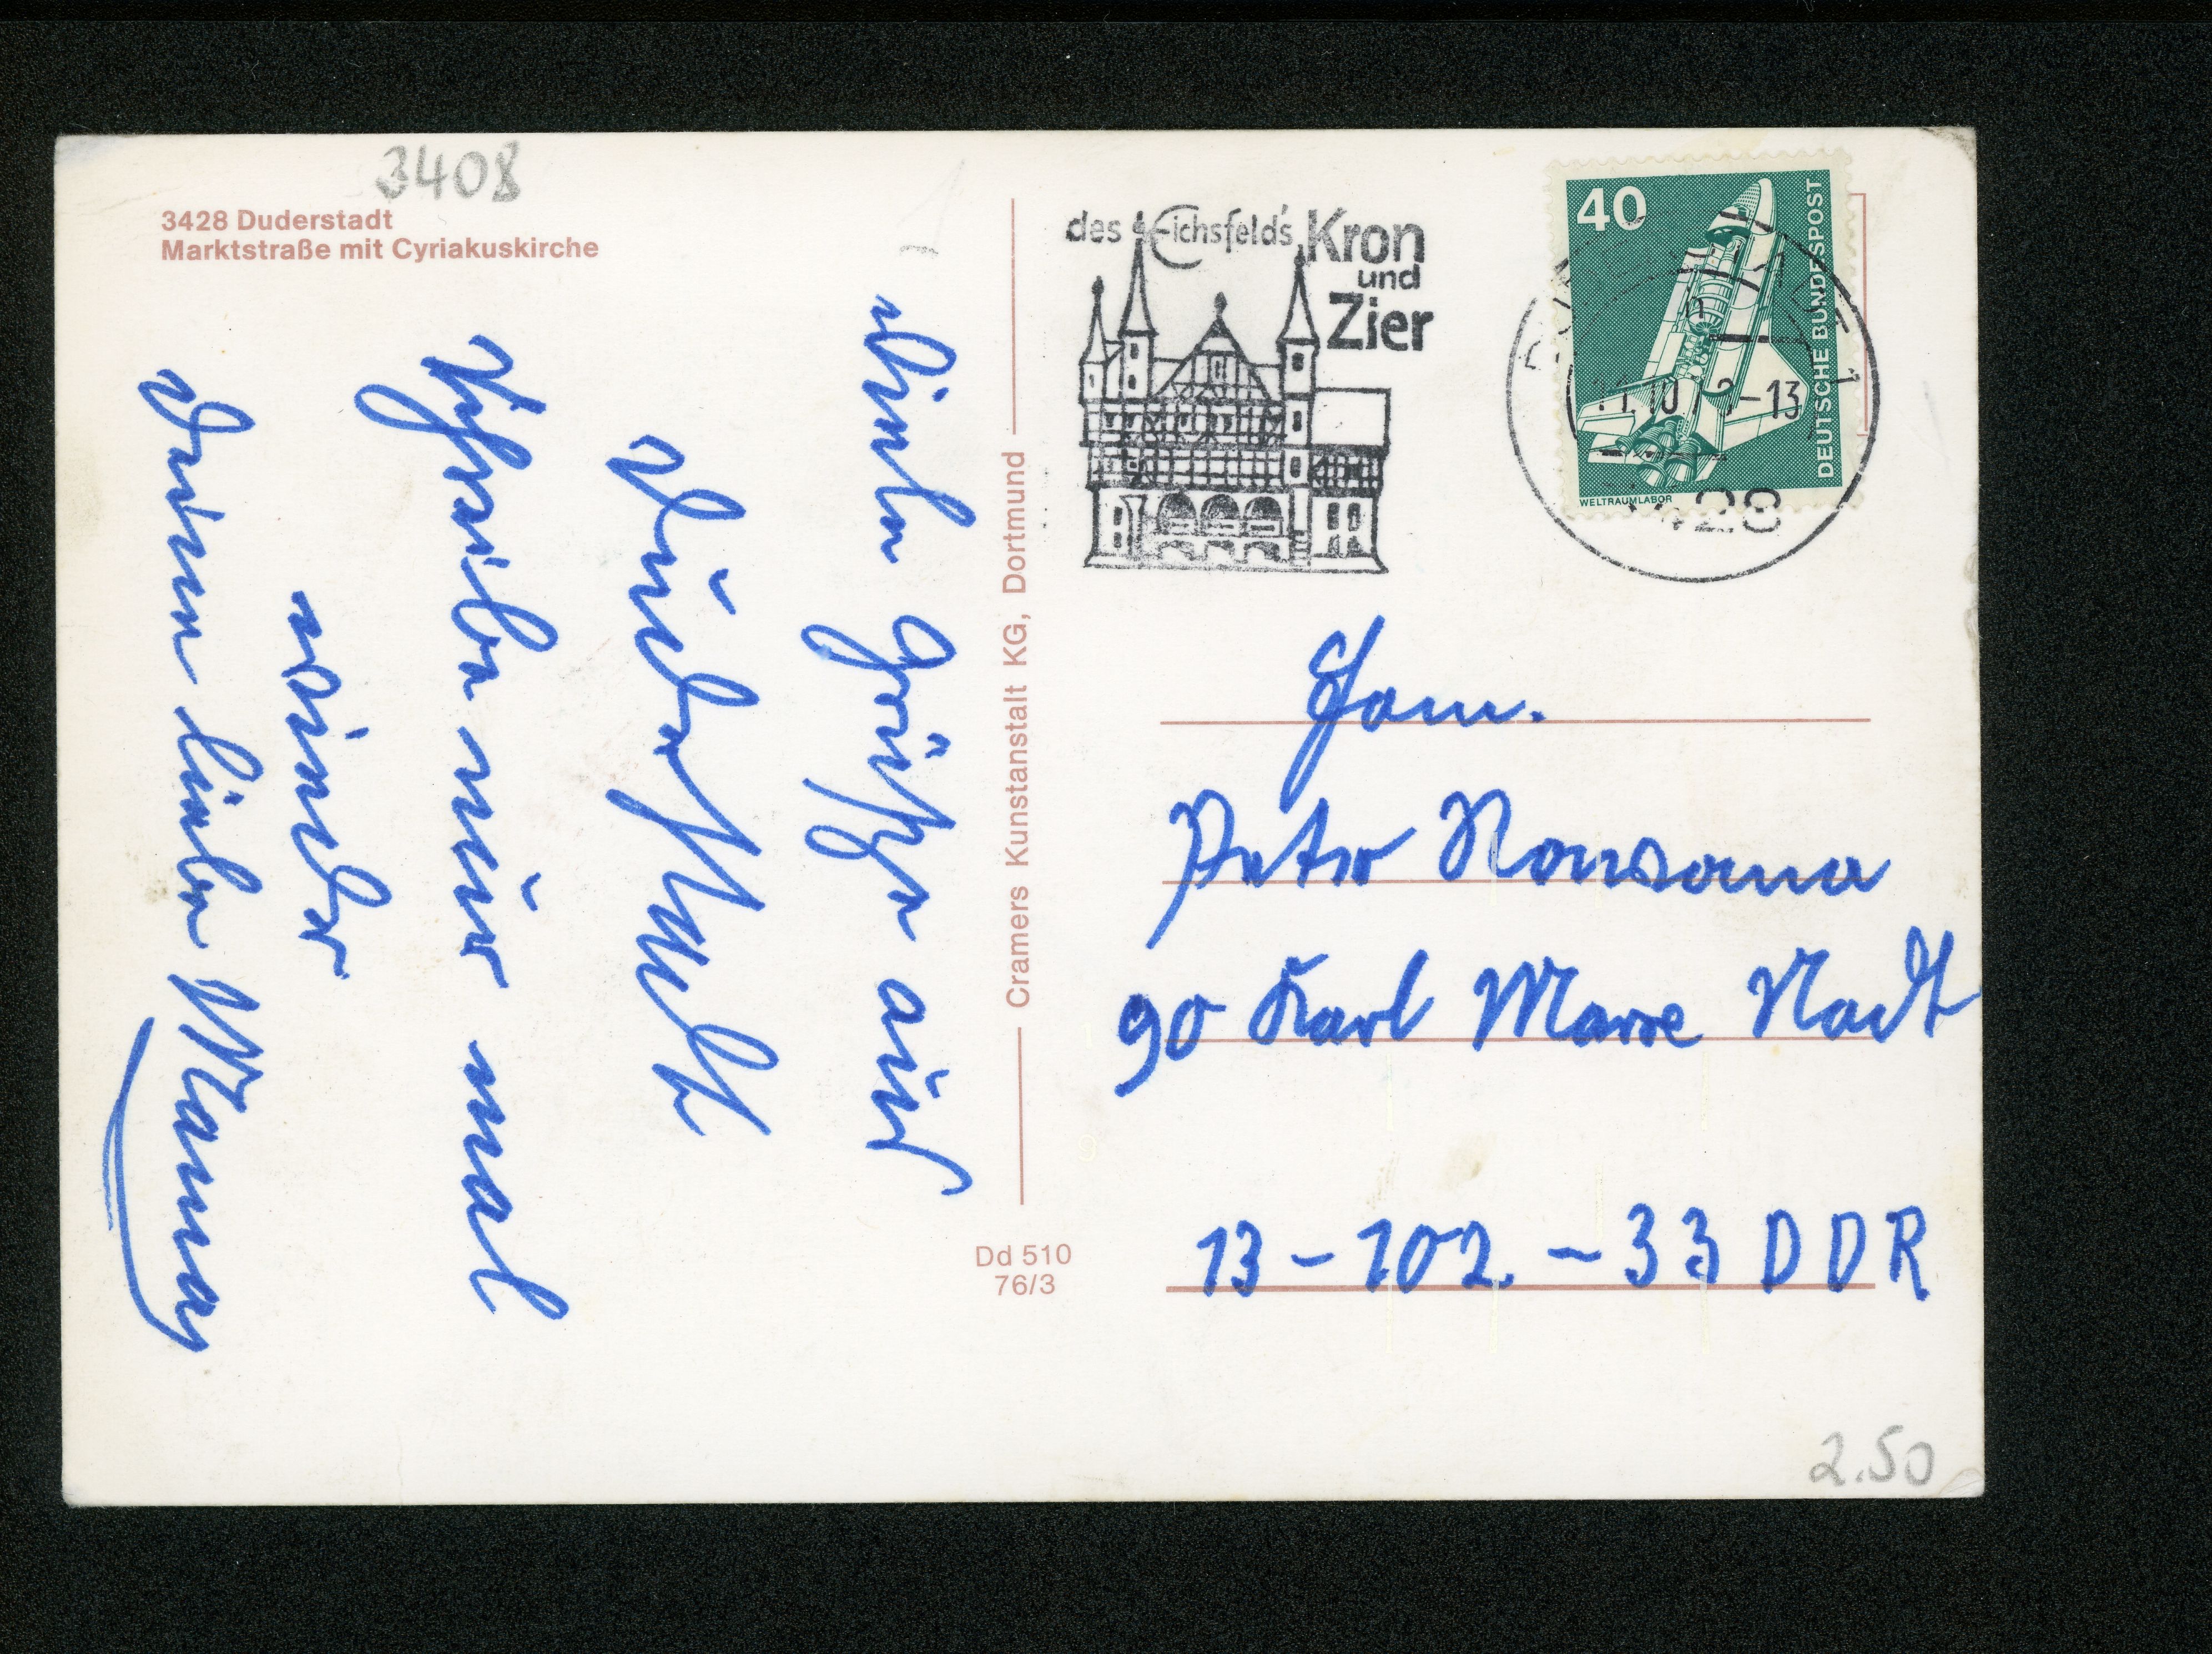 3408
3428 Duderstadt
Marktstraße mit Cyriakuskirche
viele Grüße aus
Duderstadt
Schreibe nur mal
wieder
Deine liebe Mama
Cramers Kunstanstalt KG, Dortmund
Dd 510
76/3
des Eichsfeld's Kron
und
Zier
40
DEUTSCHE BUNDESPOST
WELTRAUMLABOR
-13
3428
Fam.
Peter
90 Karl Marx Stadt
13-102.-33 DDR
2.50